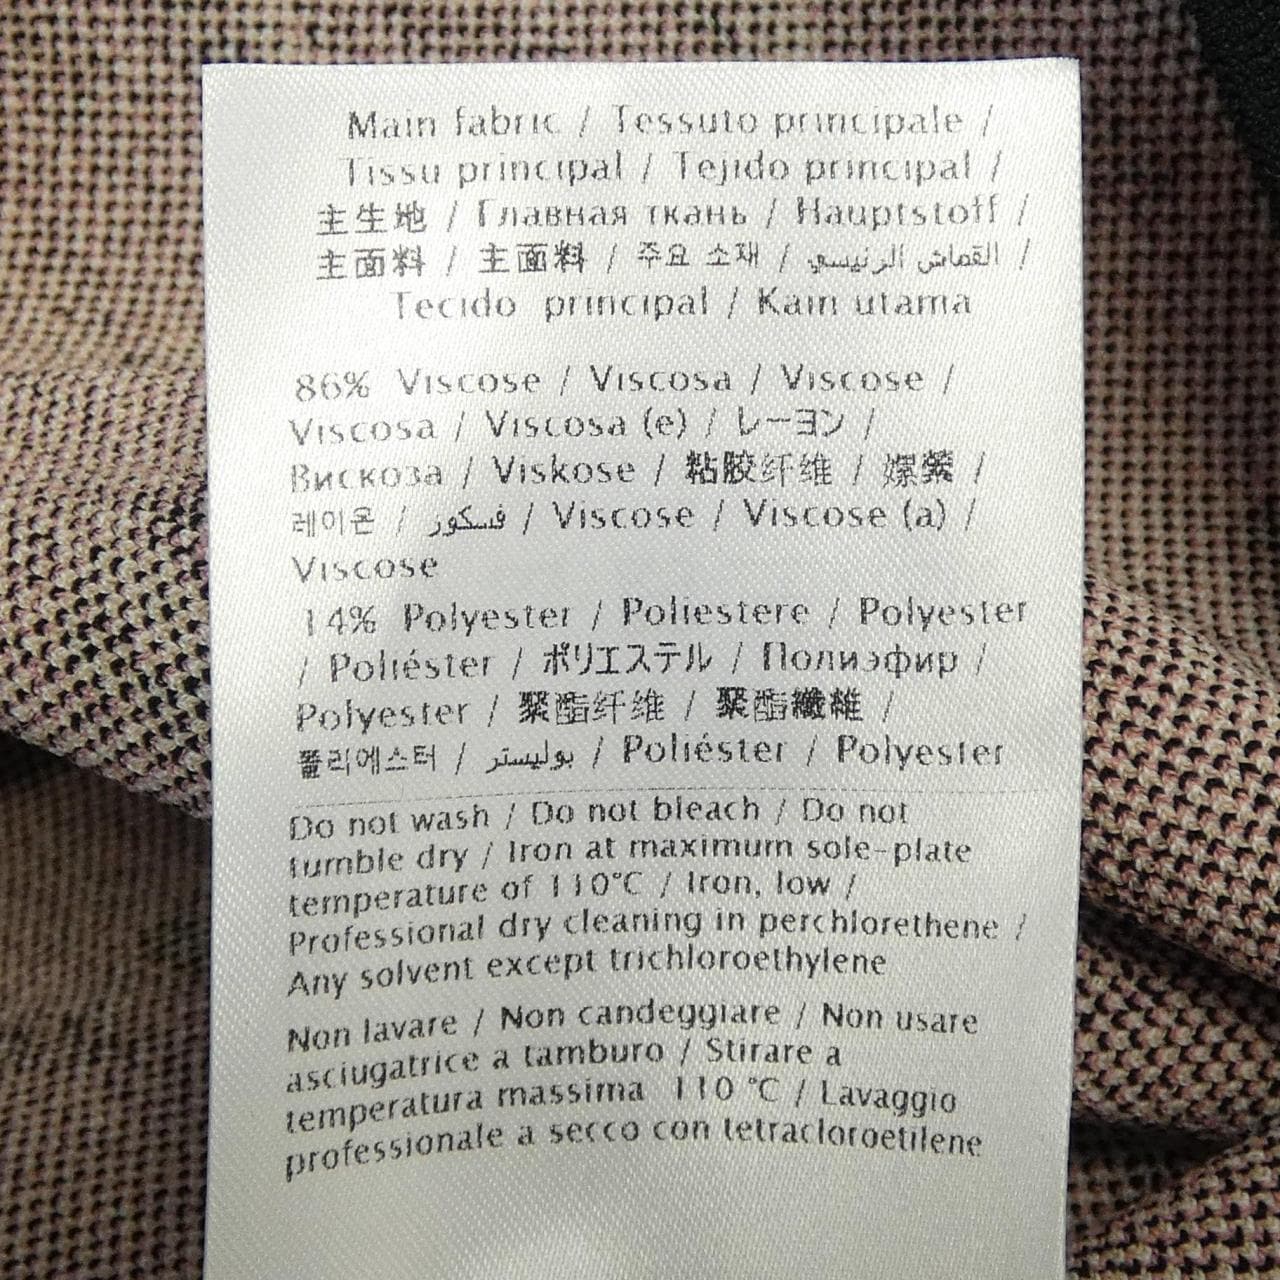 Main fabric / Tessuto principale /
Tissu principal / Tejido principal /
主生地 / Главная ткань / Hauptstoff /
主面料 / 主面料 / 주요 소재 / القماش الرئيسي /
Tecido principal / Kain utama
86% Viscose / Viscosa / Viscose /
Viscosa / Viscosa (e) / レーヨン /
Вискоза / Viskose / 粘胶纤维 / 嫘縈 /
레이온 / فسكوز / Viscose / Viscose (a) /
Viscose
14% Polyester / Poliestere / Polyester
/ Poliéster / ポリエステル / Полиэфир /
Polyester / 聚酯纤维 / 聚酯纖維 /
폴리에스터 / بوليستر / Poliéster / Polyester
Do not wash / Do not bleach / Do not
tumble dry / Iron at maximum sole-plate
temperature of 110°C / Iron, low /
Professional dry cleaning in perchlorethene /
Any solvent except trichloroethylene
Non lavare / Non candeggiare / Non usare
asciugatrice a tamburo / Stirare a
temperatura massima 110 °C / Lavaggio
professionale a secco con tetracloroetilene